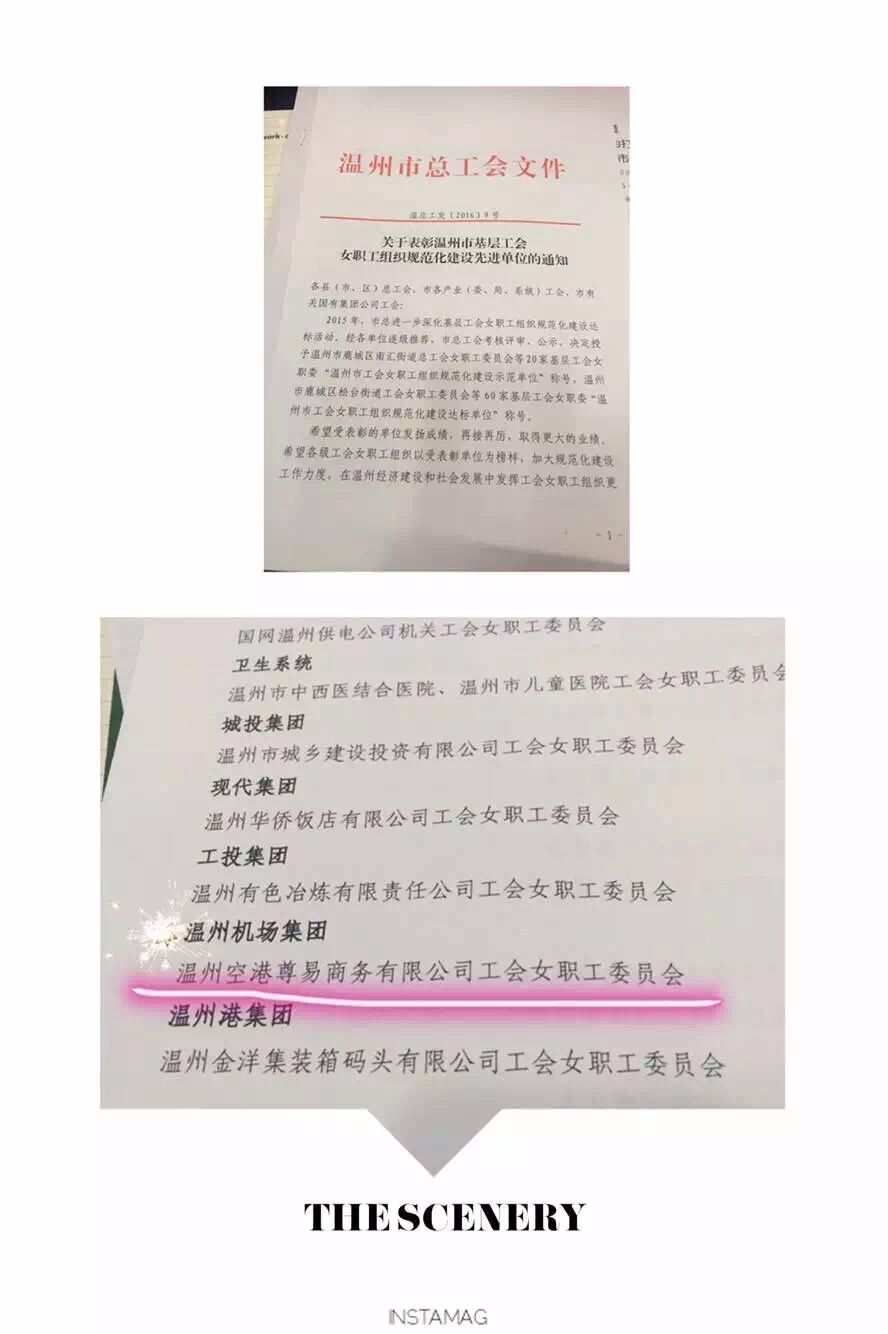 work-
温州市总工会文件
温总工发〔2016〕9号
关于表彰温州市基层工会
女职工组织规范化建设先进单位的通知
各县（市、区）总工会，市各产业（委、局、系统）工会、市有
关国有集团公司工会：
2015年，市总进一步深化基层工会女职工组织规范化建设达
标活动，经各单位逐级推荐，市总工会考核评审、公示，决定授
予温州市鹿城区南汇街道总工会女职工委员会等20家基层工会女
职委“温州市工会女职工组织规范化建设示范单位”称号，温州
市鹿城区松台街道工会女职工委员会等60家基层工会女职委“温
州市工会女职工组织规范化建设达标单位”称号。
希望受表彰的单位发扬成绩，再接再厉，取得更大的业绩。
希望各级工会女职工组织以受表彰单位为榜样，加大规范化建设
工作力度，在温州经济建设和社会发展中发挥工会女职工组织更
- 1 -
国网温州供电公司机关工会女职工委员会
卫生系统
温州市中西医结合医院、温州市儿童医院工会女职工委员会
城投集团
温州市城乡建设投资有限公司工会女职工委员会
现代集团
温州华侨饭店有限公司工会女职工委员会
工投集团
温州有色冶炼有限责任公司工会女职工委员会
温州机场集团
温州空港尊易商务有限公司工会女职工委员会
温州港集团
温州金洋集装箱码头有限公司工会女职工委员会
THE SCENERY
INSTAMAG